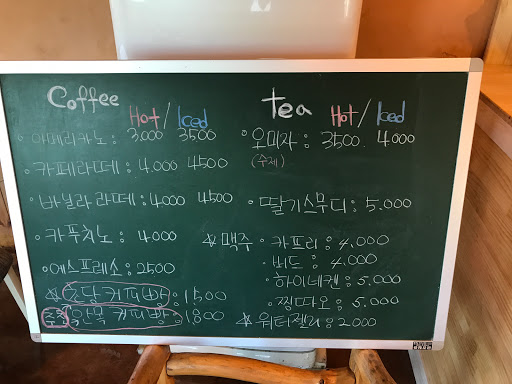 Coffee Hot / Iced
· 아메리카노 : 3.000 3500
· 카페라떼 : 4.000 4500
· 바닐라 라떼 : 4.000 4500
· 카푸치노 : 4000
· 에스프레소 : 2500
☆ 초당커피빵 : 1500
안목 커피빵 : 1800
tea Hot / Iced
· 오미자 : 3500 4000
(수제)
· 딸기스무디 : 5.000
☆ 맥주 · 카프리 : 4.000
· 버드 : 4.000
· 하이네켄 : 5,000
· 찡따오 : 5,000
☆ 워터젤리 : 2000